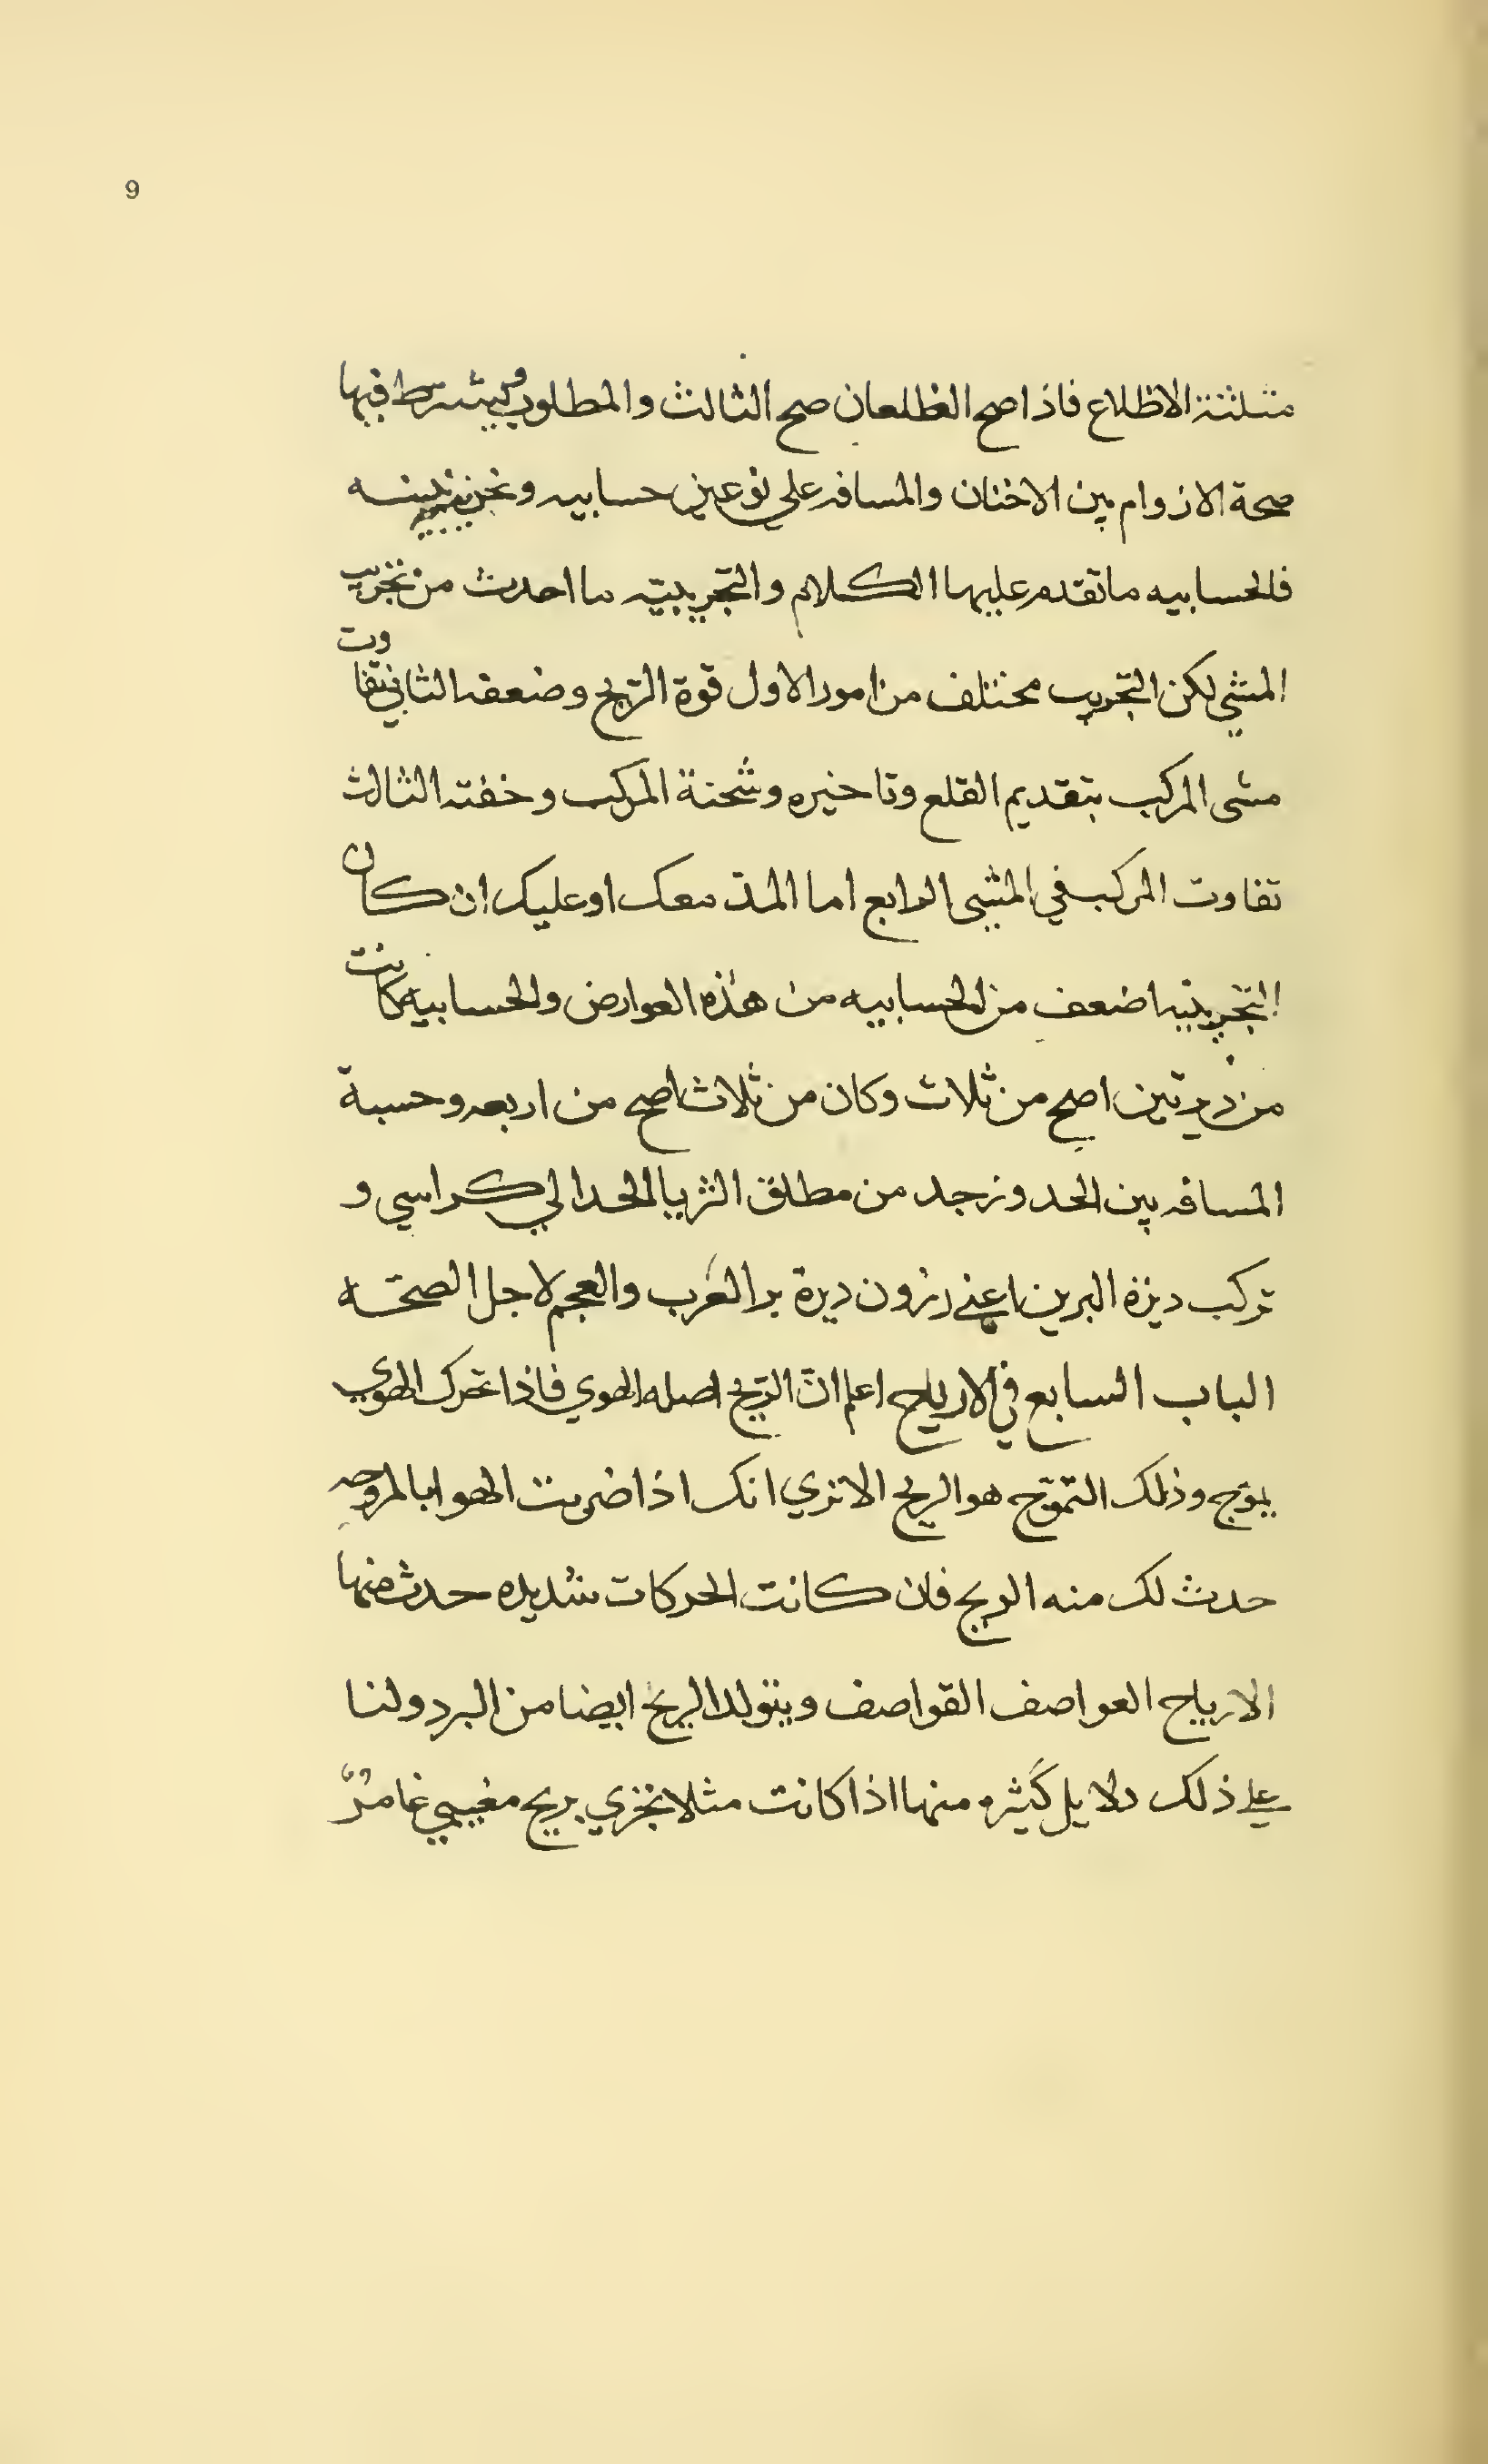 9
مثلثة الاظلاع فاذا صح الظلعان صح الثالث والمطلوب فيشرط فيها
صحة الازوام بين الاخنان والمسافه علي نوعين حسابيه وتجريبيه
فالحسابيه ما تقدم عليها الكلام والتجريبيّه ما احدث من تجريب
المشي لكن التجريب مختلف من امور الاول قوة الرّيح وضعفه الثاني تفاوت
مشى المركب بتقديم القلع وتاخيره وشحنة المركب وخفته الثالث
تفاوت المركب في المشي الرابع اما المدّ معك او عليك ان كان
التجريبيه اضعف من الحسابيه من هذه العوارض والحسابيه كانت
من ديرتين اصح من ثلاث وكان من ثلاث اصح من اربعه وحسبة
المسافه بين الحد وزجد من مطلق الثريا الحد الي كراسي و
تركب ديرة البرين اعني رزون ديرة بر العَرب والعجم لاجل الصحّه
الباب السابع في الارياح اعلم انّ الرّيح اصله الهوي فاذا تحرك الهوي
يموّج وذلك التموّج هو الريح الا تري انك اذا ضربت الهوا بالمروحه
حدث لك منه الريح فان كانت الحركات شديده حدث منها
الارياح العواصف القواصف ويتولد الريح ايضا من البرد ولنا
علي ذلك دلايل كَثيره منها اذا كانت مثلا تجري بريح مغيبي غامرٌ